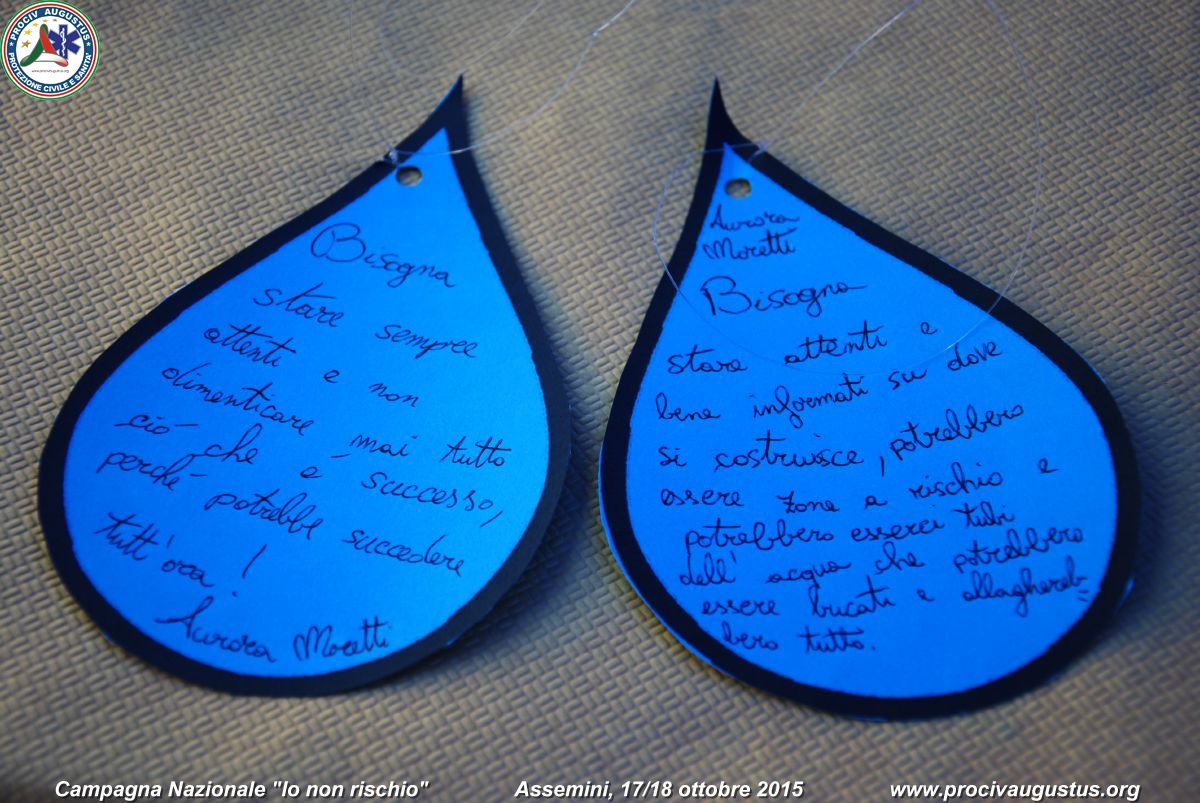 PROCIV AUGUSTUS
www.procivaugustus.org
PROTEZIONE CIVILE E SANITA'
Bisogna
stare sempre
attenti e non
dimenticare mai tutto
ció che é successo,
perché potrebbe succedere
tutt'ora!
Aurora Moretti
Aurora
Moretti
Bisogna
stare attenti e
bene informati su dove
si costruisce, potrebbero
essere zone a rischio e
potrebbero esserci tubi
dell'acqua che potrebbero
essere bucati e allaghereb-
bero tutto.
Campagna Nazionale "Io non rischio" Assemini, 17/18 ottobre 2015 www.procivaugustus.org